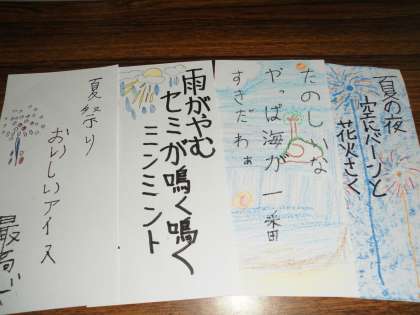 夏の夜
空にバーンと
花火さく
たのしいな
やっぱ海が一番
すきだわぁ
雨がやむ
セミが鳴く鳴く
ミンミント
夏祭り
おいしいアイス
最高